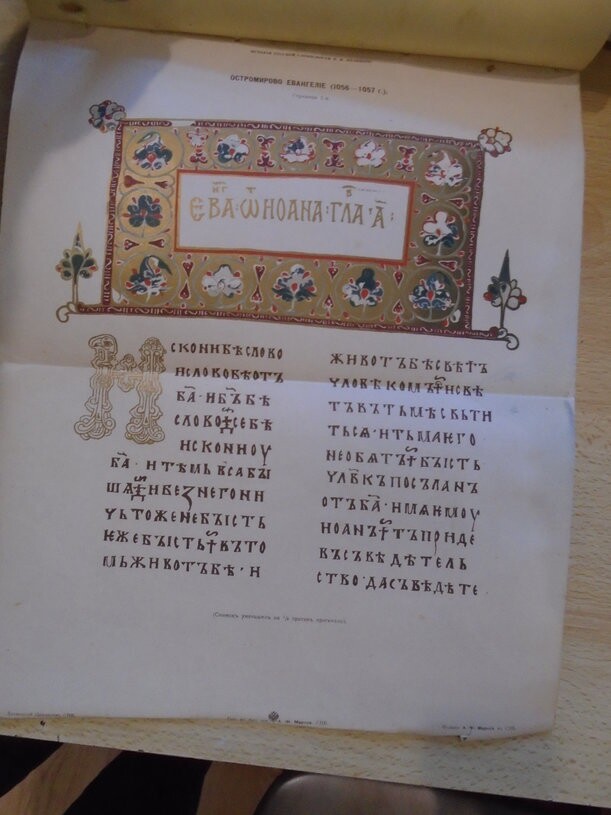 ОСТРОМИРОВО ЕВАНГЕЛІЕ (1056—1057 г.).
ЕВА · Ѡ ИОАНА · ГЛА · А҃ :
ИСКОНИ БѢ СЛОВО
И СЛОВО БѢ ОТЪ
Б҃А · И Б҃Ъ БѢ
СЛОВО · СЕ БѢ
ИСКОНИ ОУ
Б҃А · И ТѢМЬ ВСА БЫ
ША · И БЕЗ НЕГО НИ
ЧЬТОЖЕ НЕ БЫСТЬ
ѤЖЕ БЫСТЬ · ВЪ ТО
МЬ ЖИВОТЪ БѢ · И
ЖИВОТЪ БѢ СВѢТЪ
ЧЛОВѢКОМЪ · И СВѢ
ТЪ ВЪ ТЬМѢ СВЬТИ
ТЬСѦ · И ТЬМА ѤГО
НЕ ОБѨТЪ · БЫСТЬ
ЧЛ҃ВКЪ ПОСЪЛАНЪ
ОТЪ Б҃А · ИМѦ ѤМОУ
ИОАНЪ · ТЪ ПРИДЕ
ВЪ СЪВѢДѢТЕЛЬ
СТВО · ДА СЪВѢДѢТЕ